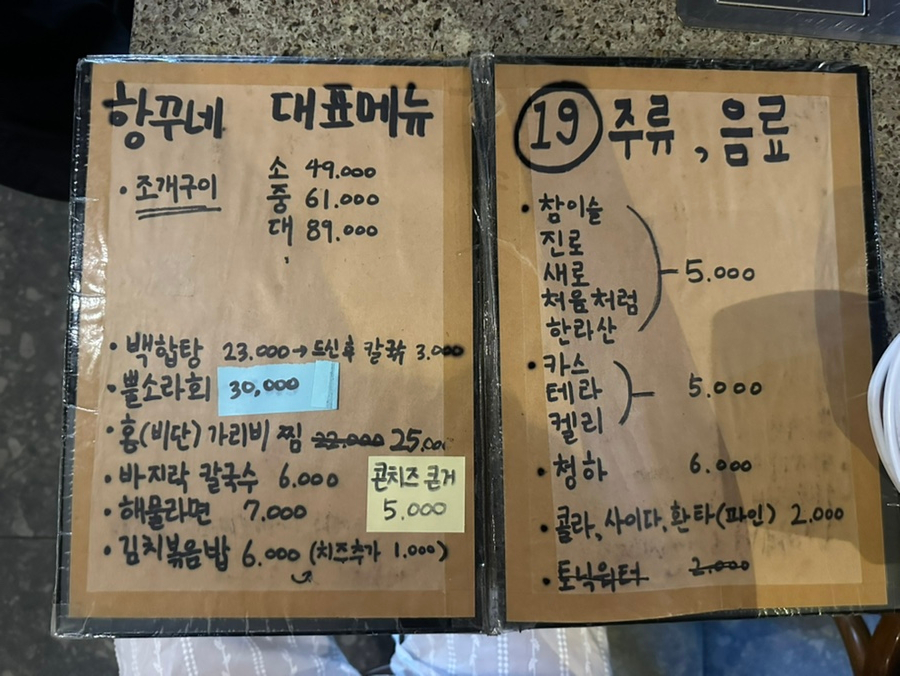 항꾸네 대표메뉴
· 조개구이 소 49.000
중 61.000
대 89.000
· 백합탕 23.000 → 드신 후 칼국수 3.000
· 뿔소라회 30,000
· 홍(비단)가리비 찜 22.000 25.000
· 바지락 칼국수 6.000
콘치즈 큰거
5.000
· 해물라면 7.000
· 김치볶음밥 6.000 (치즈추가 1.000)
19 주류, 음료
· 참이슬
진로
새로
처음처럼
한라산
5.000
· 카스
테라
켈리
5.000
· 청하 6.000
· 콜라, 사이다, 환타(파인) 2.000
· 토닉워터 2.000